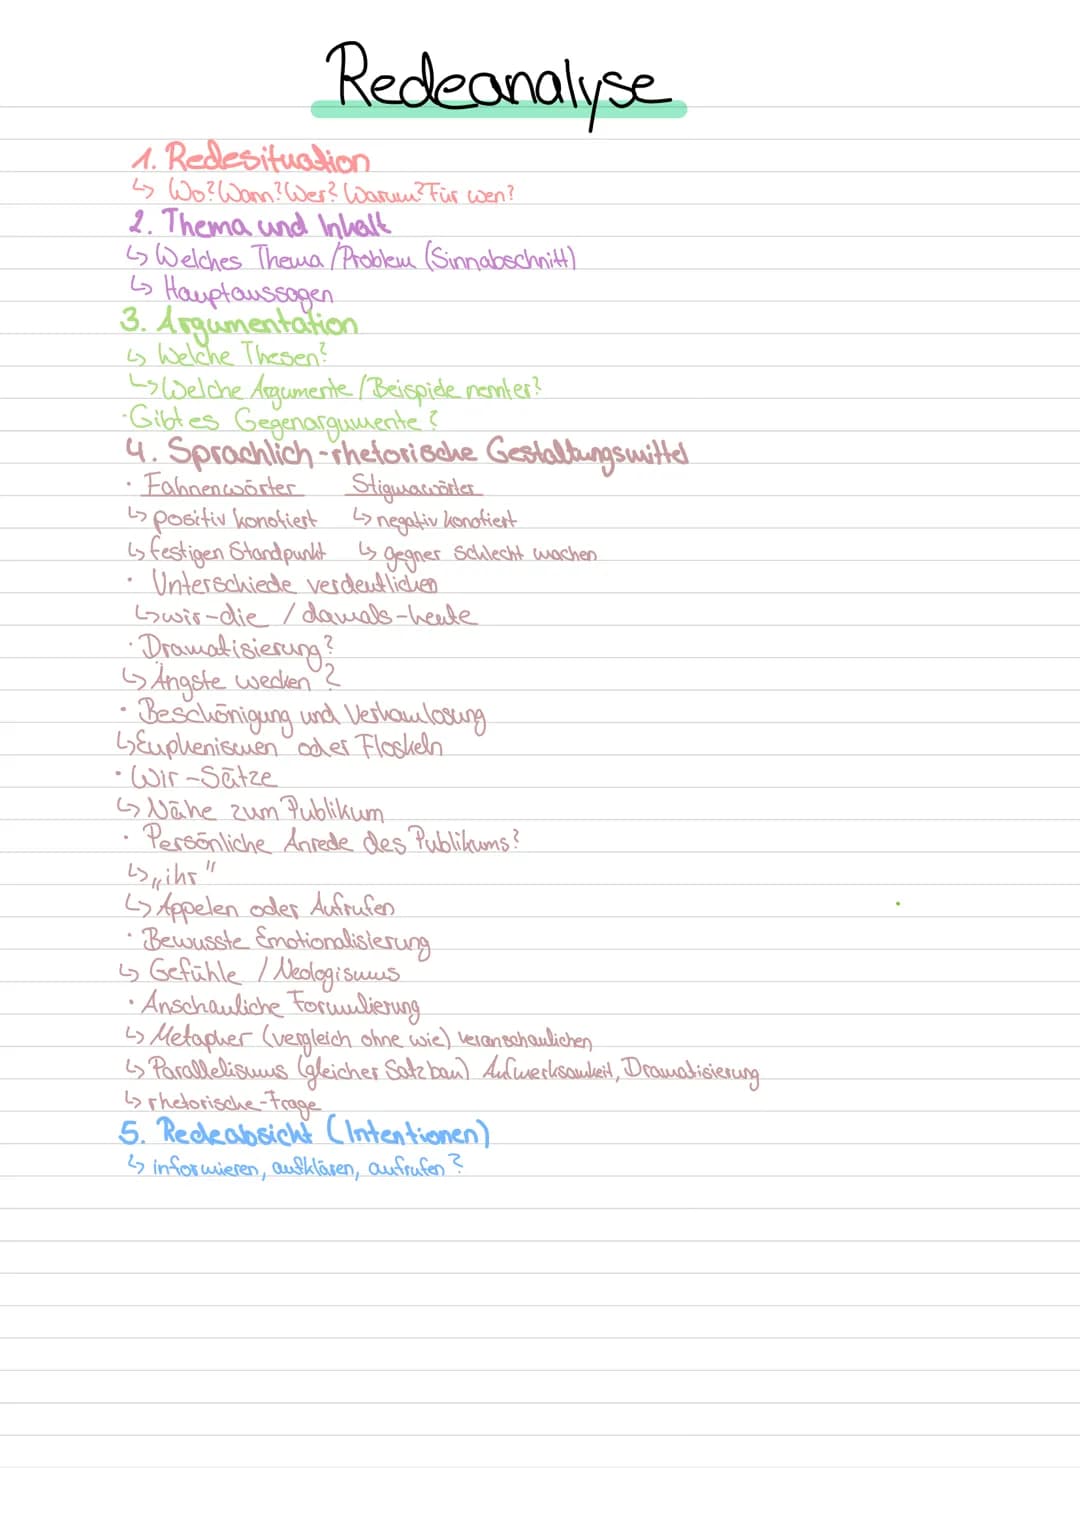 Redeanalyse
1. Redesituation
↳ Wo? Wann? Wer? Warum? Für wen?
2. Thema und Inhalt
↳ Welches Thema / Problem (Sinnabschnitt)
↳ Hauptaussagen
3. Argumentation
↳ Welche Thesen?
↳ Welche Argumente / Beispiele nennt er?
· Gibt es Gegenargumente?
4. Sprachlich-rhetorische Gestaltungsmittel
· Fahnenwörter Stigmawörter
↳ positiv konotiert ↳ negativ konotiert
↳ festigen Standpunkt ↳ gegner schlecht machen
· Unterschiede verdeutlichen
↳ wir-die / damals-heute
· Dramatisierung?
↳ Ängste wecken?
· Beschönigung und Verhamlosung
↳ Eupheniscmen oder Floskeln
· Wir-Sätze
↳ Nähe zum Publikum
· Persönliche Anrede des Publikums?
↳ „ihr"
↳ Appelen oder Aufrufen
· Bewusste Emotionalisierung
↳ Gefühle / Neologismus
· Anschauliche Formulierung
↳ Metapher (vergleich ohne wie) veranschaulichen
↳ Parallelismus (gleicher Satzbau) Aufmerksamkeit, Dramatisierung
↳ rhetorische-Frage
5. Redeabsicht (Intentionen)
↳ informieren, aufklären, aufrufen?